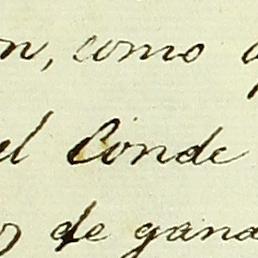 n, como
el Conde
de gana